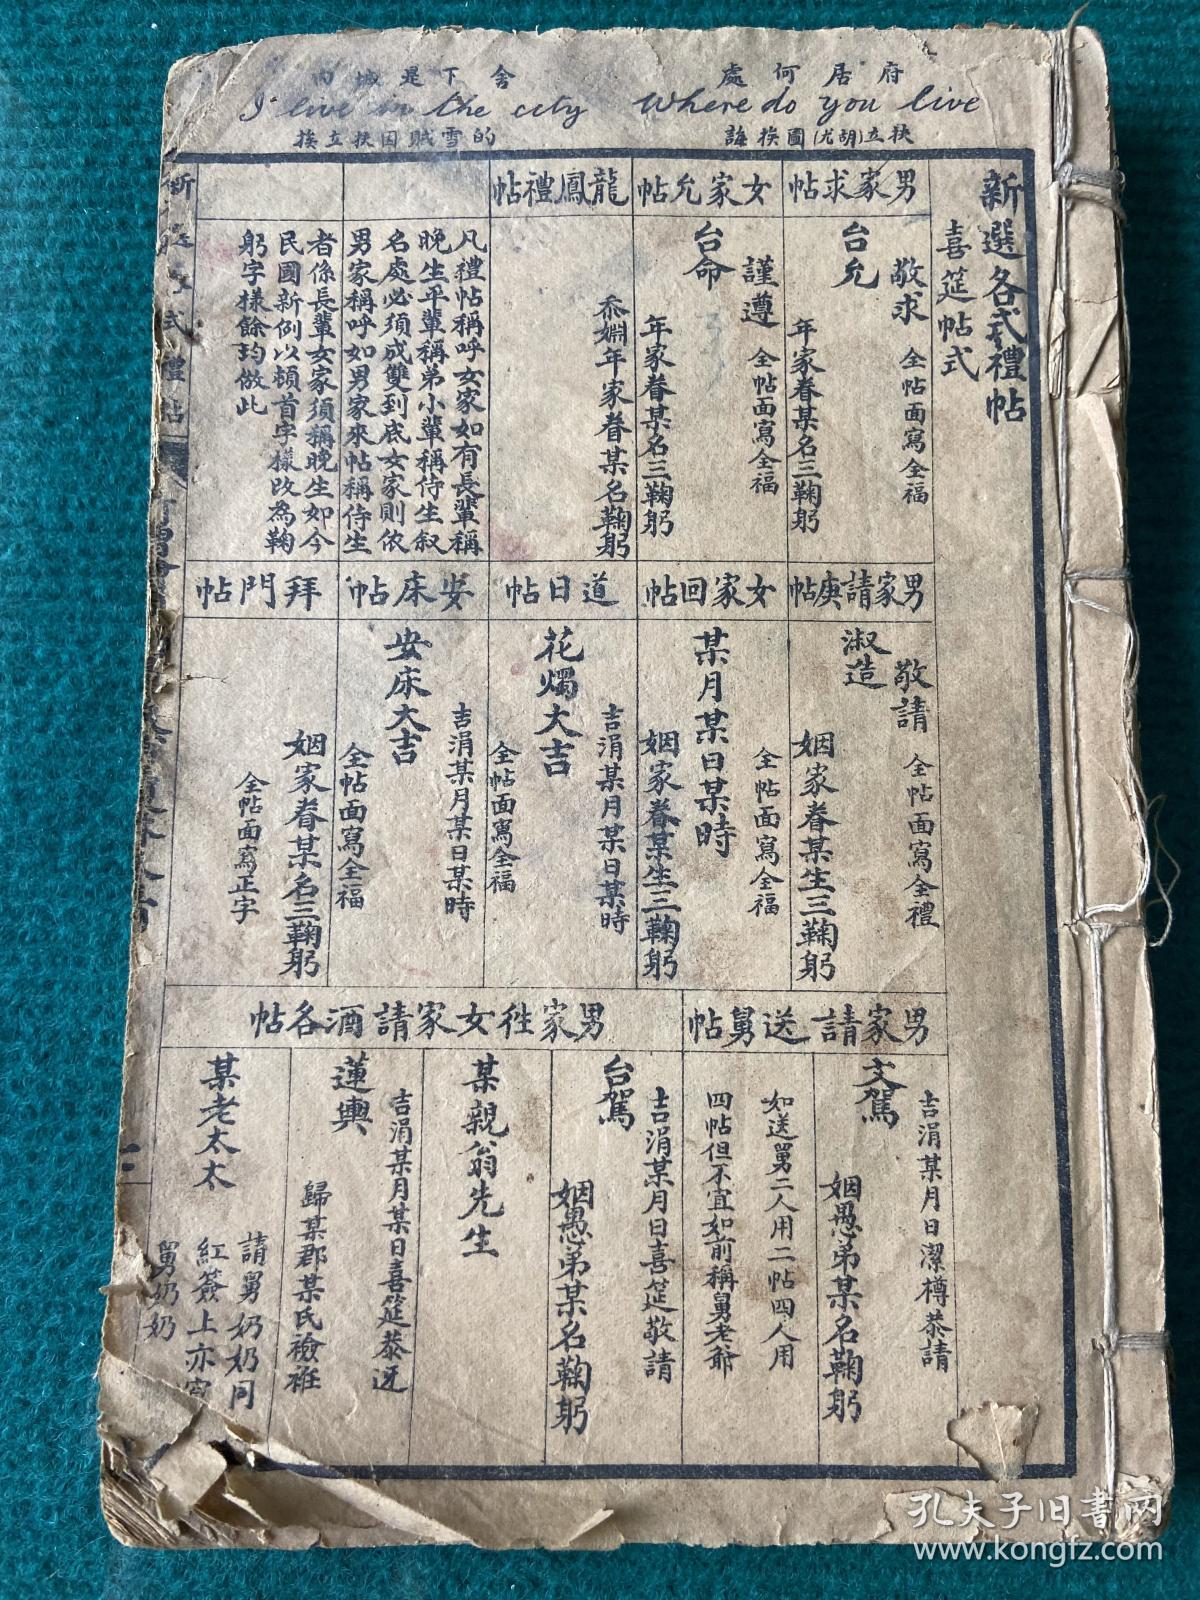 府居何處
Where do you live
扶立(胡尤)圖挨誨
舍下是城內
I live in the city
的雪賊因扶立挨
新選各式禮帖
喜筵帖式
男家求帖
敬求
台允
全帖面寫全福
年家眷某名三鞠躬
女家允帖
謹遵
台命
全帖面寫全福
年家眷某名三鞠躬
龍鳳禮帖
忝姻年家眷某名鞠躬
凡禮帖稱呼女家如有長輩稱
晚生平輩稱弟小輩稱侍生叙
名處必須成雙到底女家則依
男家稱呼如男家來帖稱侍生
者係長輩女家須稱晚生如今
民國新例以頓首字樣改為鞠
躬字樣餘均倣此
男家請庚帖
敬請
淑造
全帖面寫全禮
姻家眷某生三鞠躬
女家回帖
某月某日某時
全帖面寫全福
姻家眷某生三鞠躬
道日帖
吉涓某月某日某時
花燭大吉
全帖面寫全福
安床帖
吉涓某月某日某時
安床大吉
全帖面寫全福
拜門帖
姻家眷某名三鞠躬
全帖面寫正字
男家請送舅帖
吉涓某月日潔樽恭請
文駕
姻愚弟某名鞠躬
如送舅二人用二帖四人用
四帖但不宜如前稱舅老爺
男家徃女家請酒各帖
吉涓某月日喜筵敬請
台駕
姻愚弟某名鞠躬
某親翁先生
吉涓某月某日喜筵恭迓
蓮輿
歸某郡某氏襝袵
某老太太
請舅奶奶同
紅簽上亦寫
舅奶奶
新選各式禮帖
孔夫子旧书网
www.kongfz.com